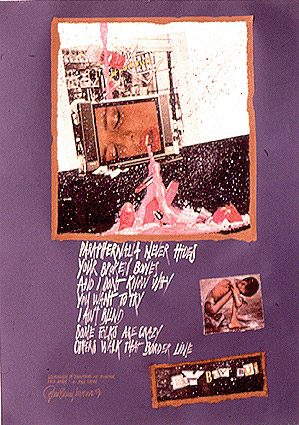 PARAPHERNALIA NEVER HIDES
YOUR BROKEN BONES
AND I DON'T KNOW WHY
YOU WANT TO TRY
I AIN'T BLIND
SOME FOLKS ARE CRAZY
OTHERS WALK THAT BORDER LINE